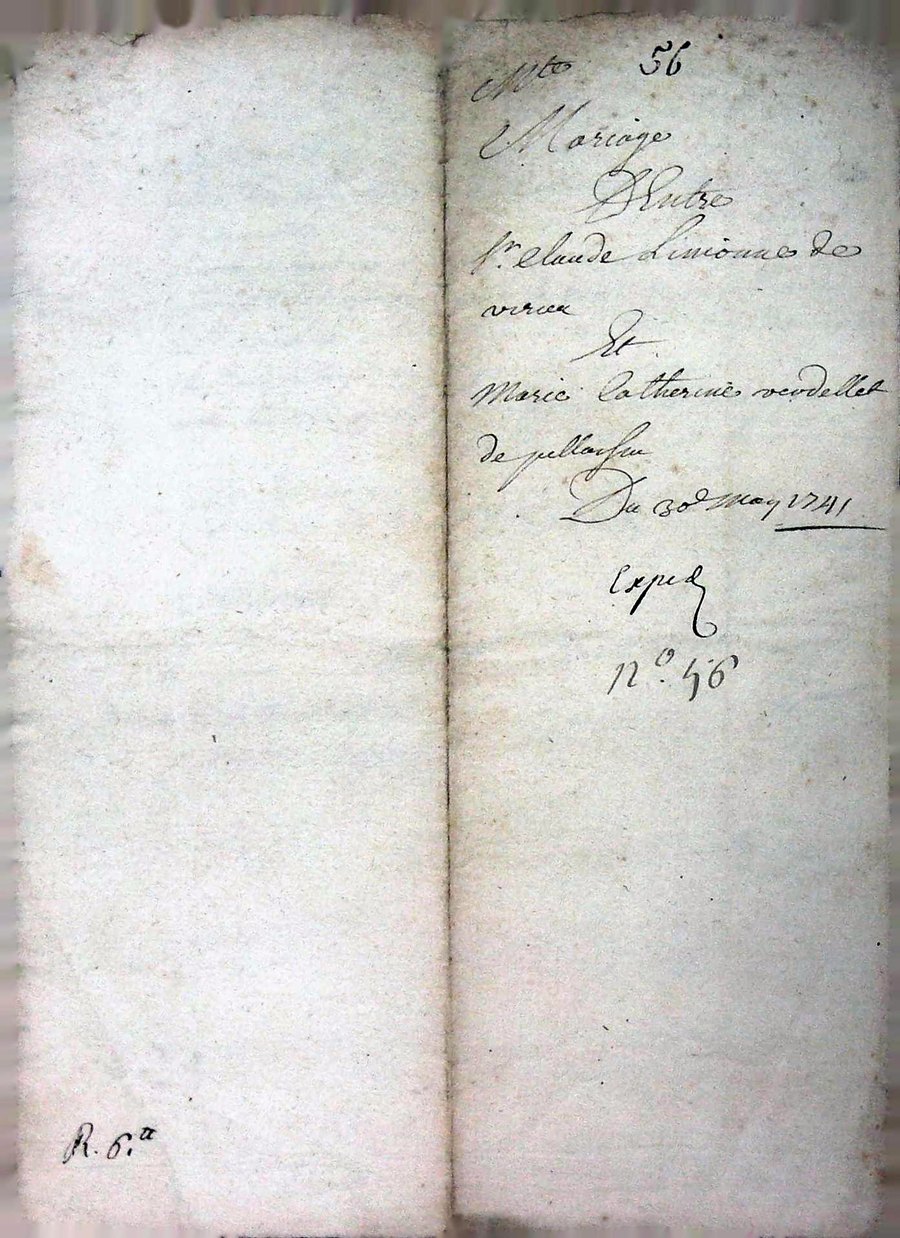 Mte 56
Mariage
D'Entre
Sr. Claude Limonne de
virieu
Et
Marie Catherine verdellet
de
Du 30e may 1741
Exped
N°. 56
R. 6.tt